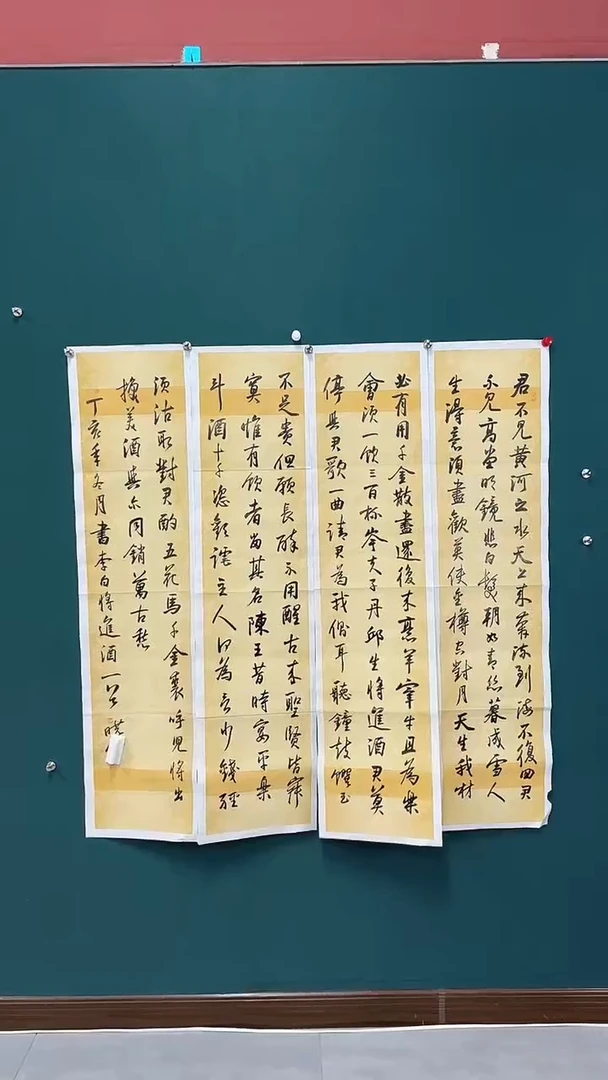 君不見黃河之水天上來奔流到海不復回君
不見高堂明鏡悲白髮朝如青絲暮成雪人
生得意須盡歡莫使金樽空對月天生我材
必有用千金散盡還復來烹羊宰牛且為樂
會須一飲三百杯岑夫子丹邱生將進酒君莫
停與君歌一曲請君為我側耳聽鐘鼓饌玉
不足貴但願長醉不用醒古來聖賢皆寂
寞惟有飲者留其名陳王昔時宴平樂
斗酒十千恣歡謔主人何為言少錢徑
須沽取對君酌五花馬千金裘呼兒將出
換美酒與尔同銷萬古愁
丁亥年冬月書李白將進酒一首